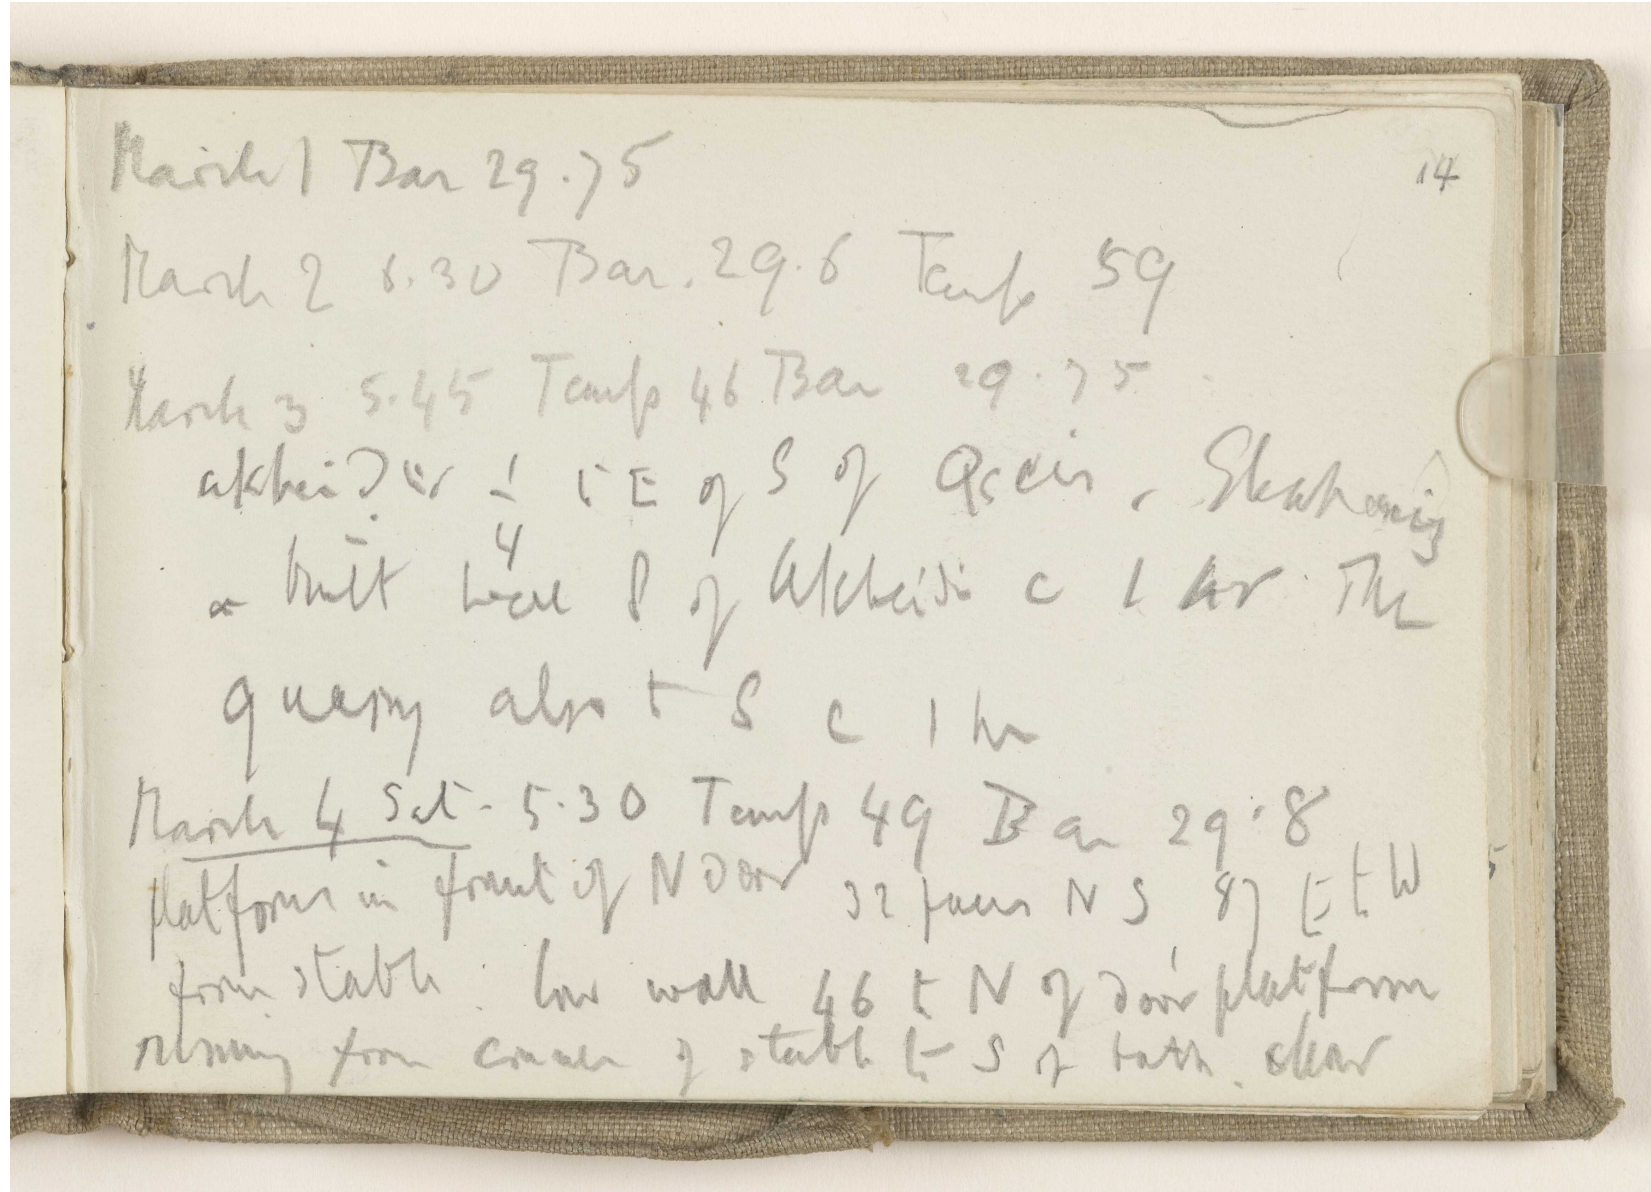 14
March 1 Bar 29.75
March 2 6.30 Bar. 29.6 Temp 59
March 3 5.45 Temp 46 Bar 29.75
ukheidir 1/4 to E of S of Qseir.
a built S of Ukheidir c 1 hr The
quarry also to S c 1 hr
March 4 Sat. 5.30 Temp 49 Bar 29.8
Platform in front of N door 32 paces N S 87 E to W
from stable. low wall 46 to N of door platform
running from corner of stable to S of bath. door